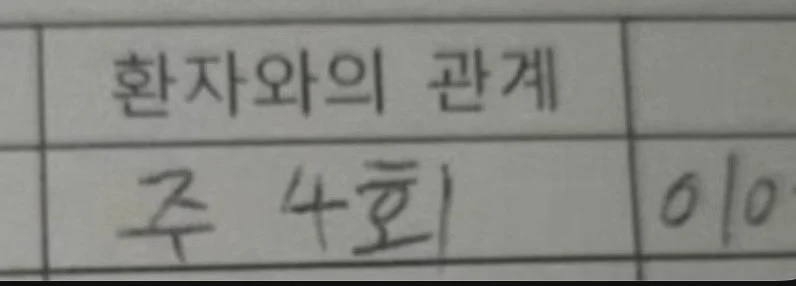 환자와의 관계
주 4회 010